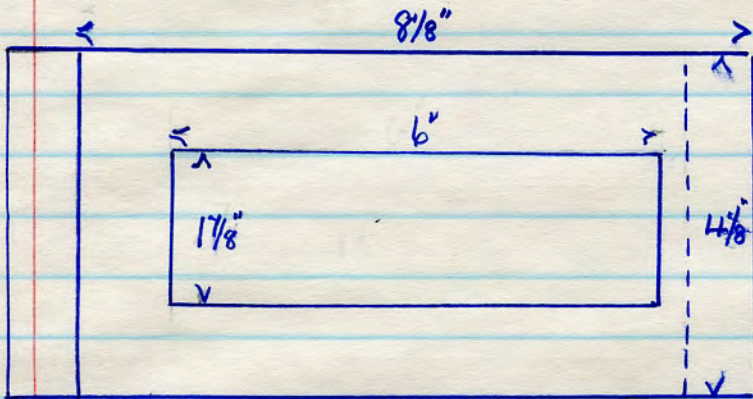 8 1/8"
6"
1 7/8"
4 1/8"